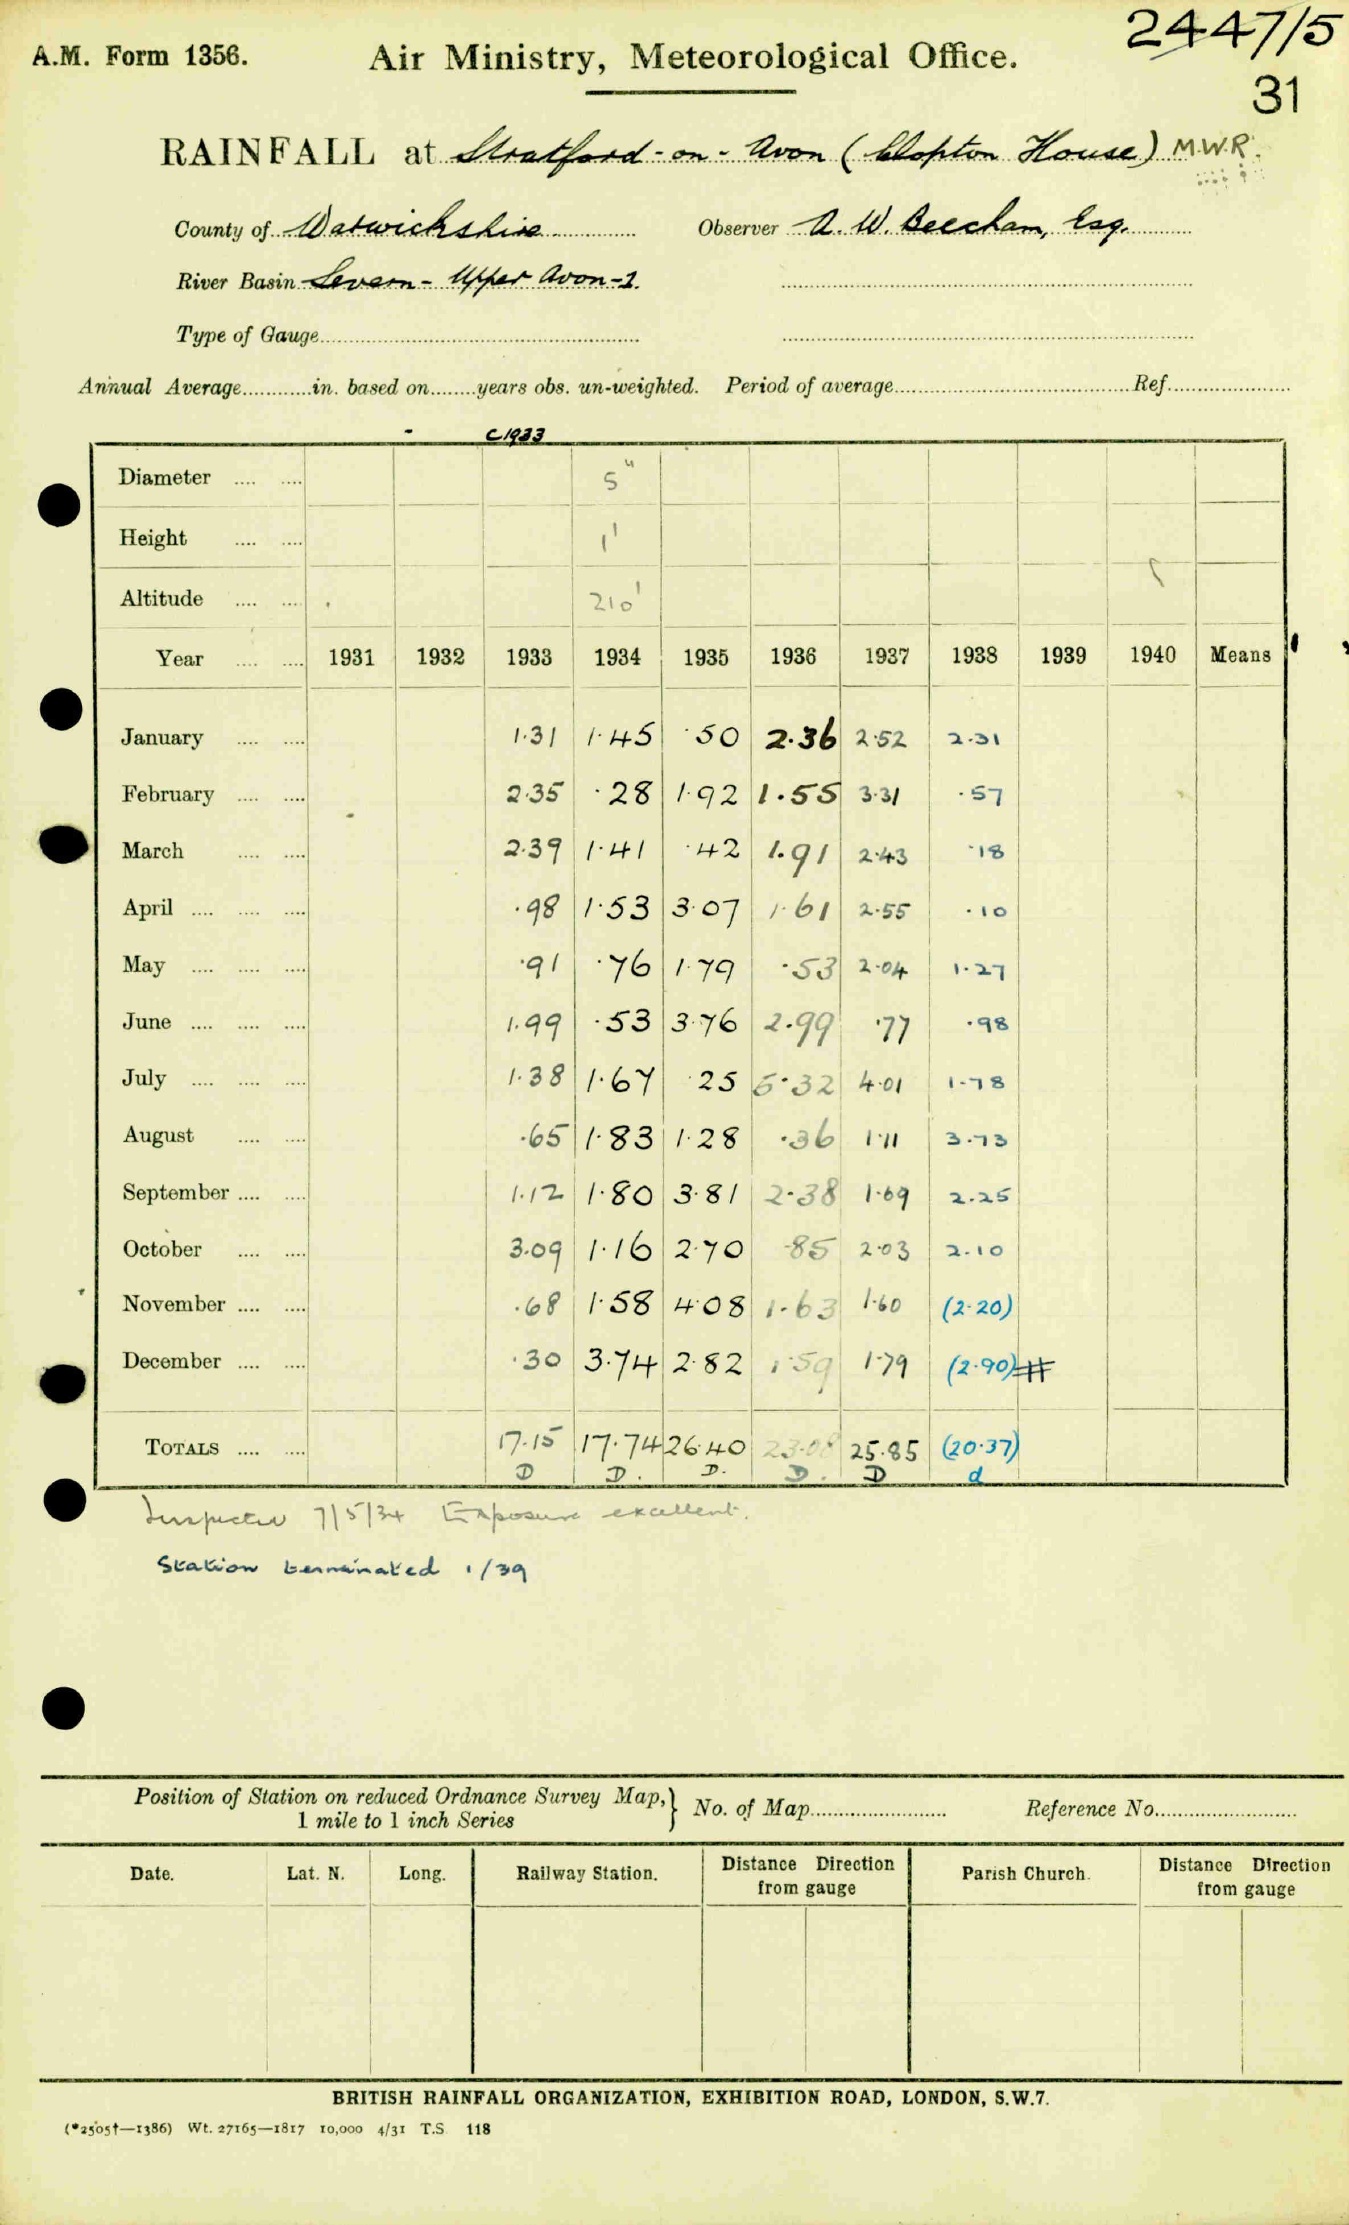 2447/5
A.M. Form 1356. Air Ministry, Meteorological Office.
31
RAINFALL at Stratford-on-Avon (Clopton House) M.W.R.
County of Warwickshire Observer A. W. Beecham, Esq.
River Basin Severn - Upper Avon-1.
Type of Gauge
Annual Average in. based on years obs. un-weighted. Period of average Ref.
C1933
Diameter 5"
Height 1'
Altitude 210'
Year 1931 1932 1933 1934 1935 1936 1937 1938 1939 1940 Means
January 1.31 1.45 .50 2.36 2.52 2.31
February 2.35 .28 1.92 1.55 3.31 .57
March 2.39 1.41 .42 1.91 2.43 .18
April .98 1.53 3.07 1.61 2.55 .10
May .91 .76 1.79 .53 2.04 1.27
June 1.99 .53 3.76 2.99 .77 .98
July 1.38 1.67 .25 5.32 4.01 1.78
August .65 1.83 1.28 .36 1.11 3.73
September 1.12 1.80 3.81 2.38 1.69 2.25
October 3.09 1.16 2.70 .85 2.03 2.10
November .68 1.58 4.08 1.63 1.60 (2.20)
December .30 3.74 2.82 1.59 1.79 (2.90)#
TOTALS 17.15 17.74 26.40 23.08 25.85 (20.37)
D D. D. D. D d
Inspected 7/5/34 Exposure excellent.
Station terminated 1/39
Position of Station on reduced Ordnance Survey Map, 1 mile to 1 inch Series } No. of Map Reference No.
Date. Lat. N. Long. Railway Station. Distance Direction from gauge Parish Church. Distance Direction from gauge
BRITISH RAINFALL ORGANIZATION, EXHIBITION ROAD, LONDON, S.W.7.
(*2505†—1386) Wt. 27165—1817 10,000 4/31 T.S. 118